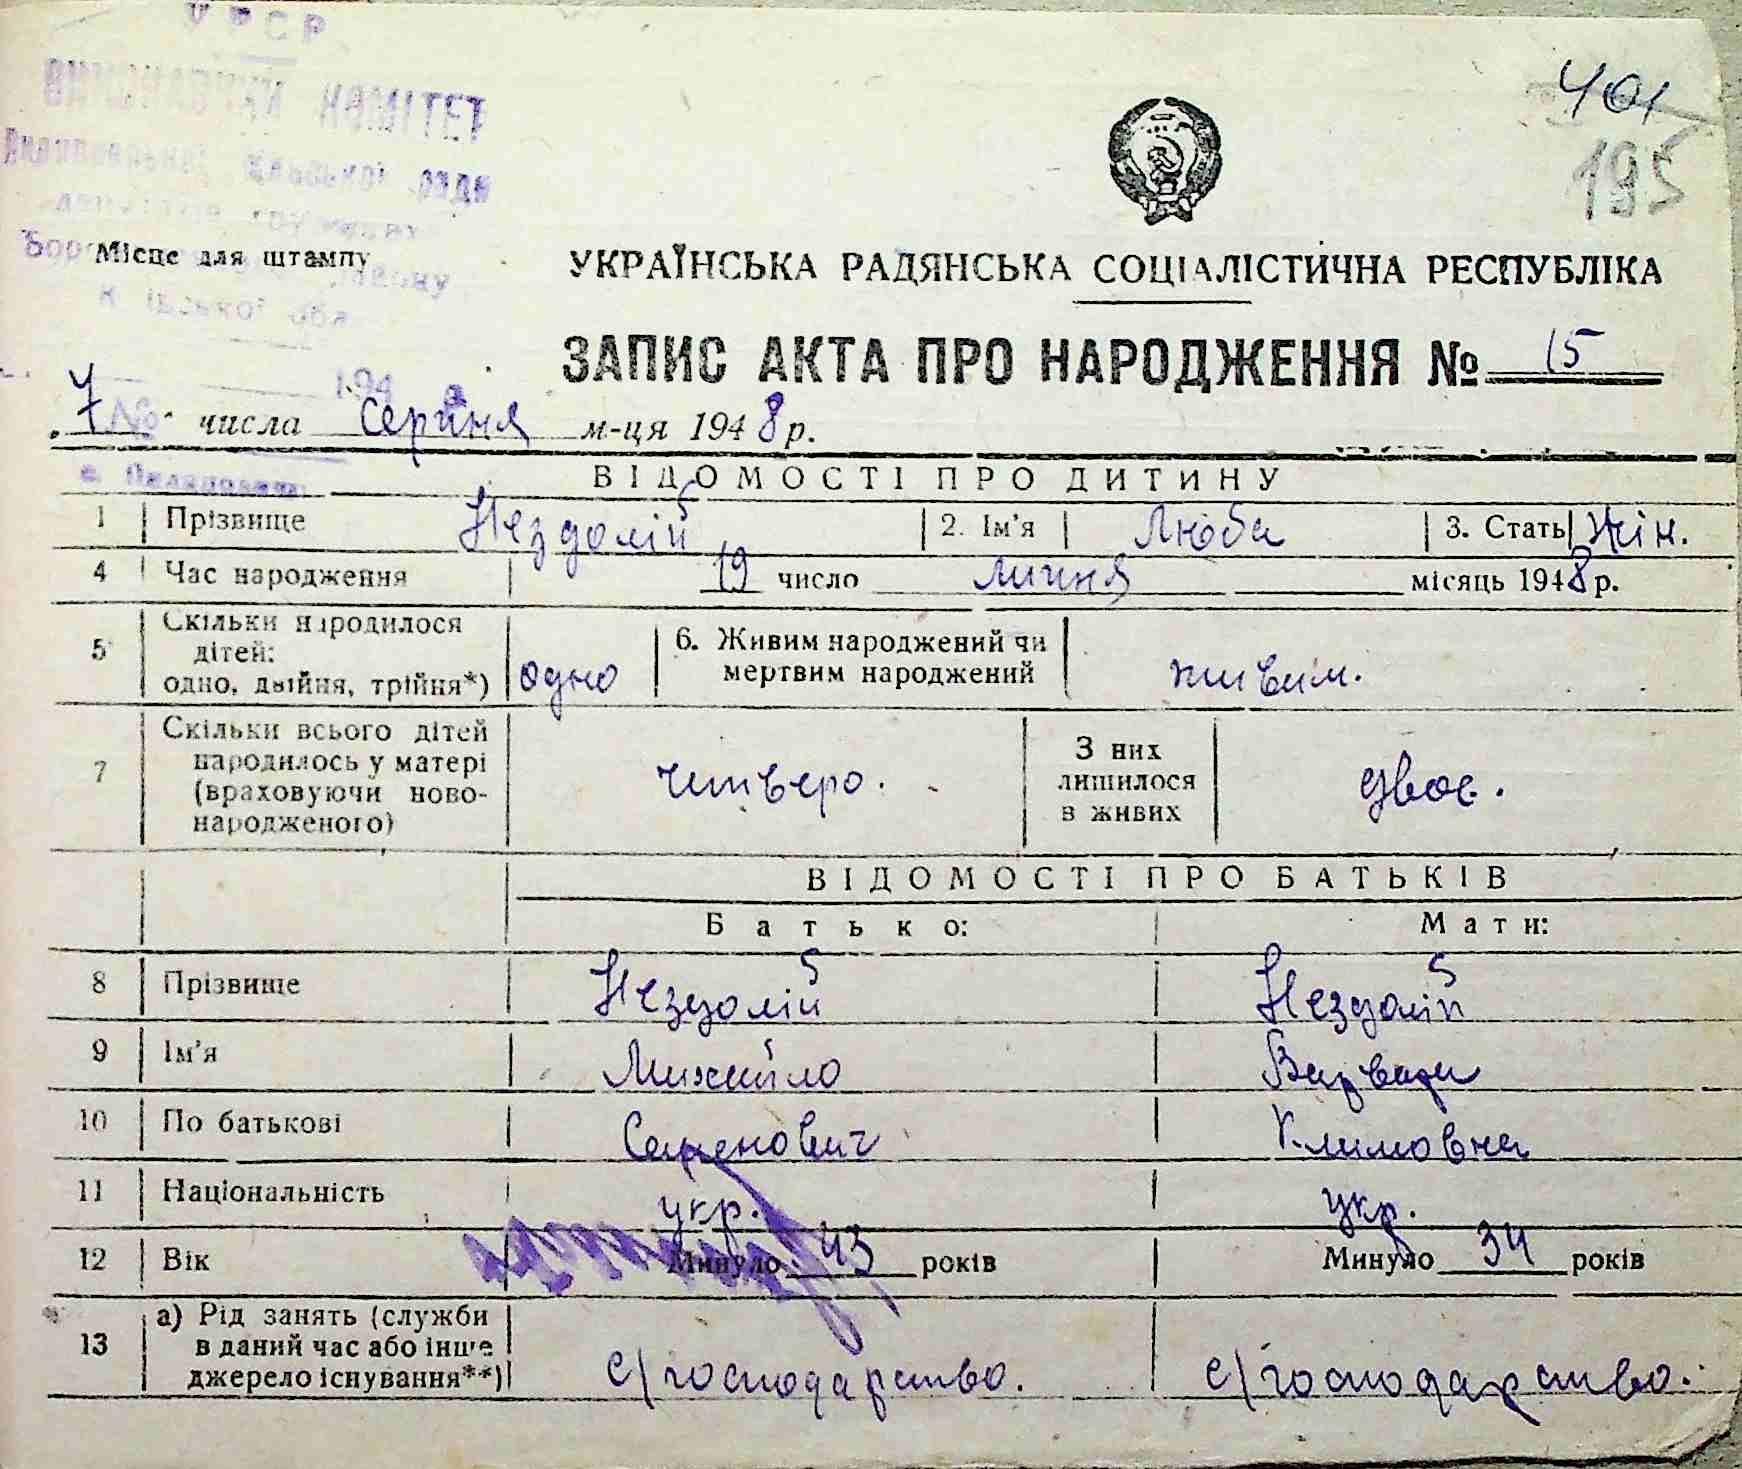 УРСР
ВИКОНАВЧИЙ КОМІТЕТ
сільської ради
депутатів трудящих
району
Київської обл.
401
195
Місце для штампу
УКРАЇНСЬКА РАДЯНСЬКА СОЦІАЛІСТИЧНА РЕСПУБЛІКА
ЗАПИС АКТА ПРО НАРОДЖЕННЯ № 15
194 р.
№
„7" числа серпня м-ця 1948 р.
ВІДОМОСТІ ПРО ДИТИНУ
1 Прізвище Нездолій 2. Ім'я Люба 3. Стать жін.
4 Час народження 19 число липня місяць 1948 р.
5 Скільки народилося дітей: одно, двійня, трійня*) одно 6. Живим народжений чи мертвим народжений живим.
7 Скільки всього дітей народилось у матері (враховуючи новонародженого) четверо. З них лишилося в живих двоє.
ВІДОМОСТІ ПРО БАТЬКІВ
Батько: Мати:
8 Прізвище Нездолій Нездолій
9 Ім'я Михайло Варвара
10 По батькові Семенович Климовна
11 Національність укр. укр.
12 Вік Минуло 43 років Минуло 34 років
13 а) Рід занять (служби в даний час або інше джерело існування**) с/господарство. с/господарство.